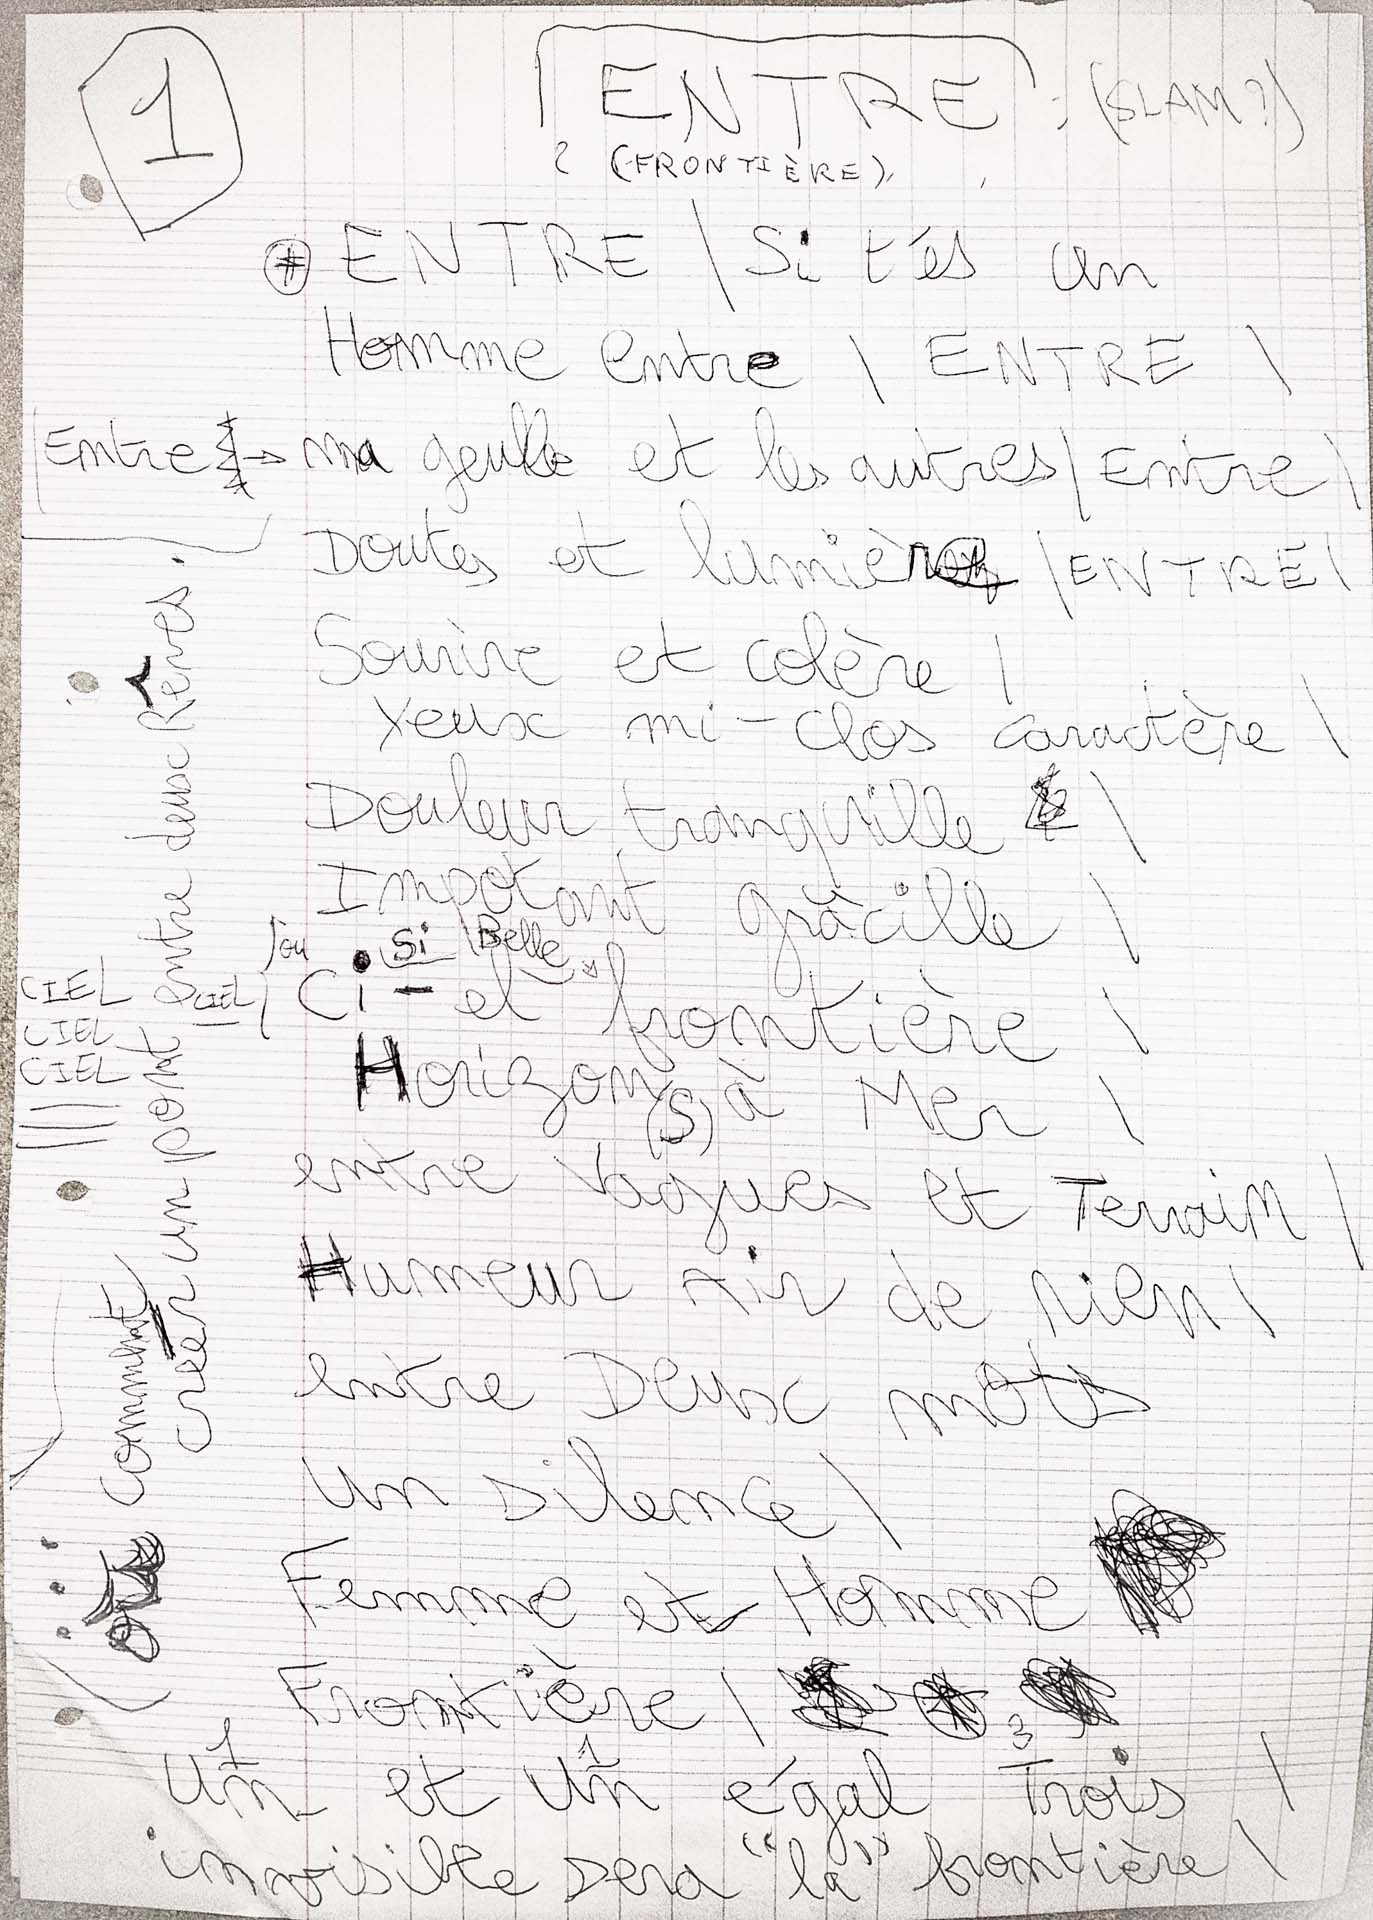 1
ENTRE : (SLAM?)
(FRONTIÈRE)
* ENTRE | Si t'és un
Homme entre | ENTRE |
Entre → ma geulle et les autres | Entre |
Doutes et lumière | ENTRE |
Sourire et colère |
Yeux mi-clos caractère |
Douleur tranquille |
Impotant grâcille |
ou Si Belle
Ci-el frontière |
CIEL
CIEL
CIEL
CIEL
Horizon(s) à Mer |
entre Vagues et Terrain |
Humeur Air de rien |
entre Deux mots
un silence |
Femme et Homme
Frontière |
1 1 3
un et un égal Trois |
invisible sera "la" frontière |
Comment
créer un pont entre deux Rêves.